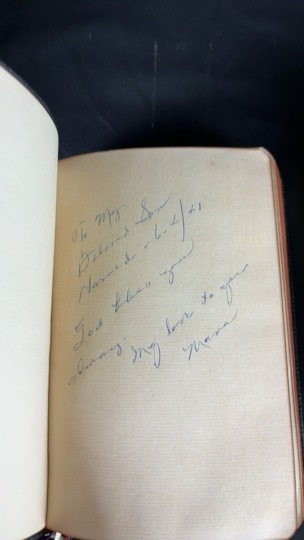 To My
Beloved Son
Harold - 6-2/41
God bless you
always.
My love to you
Mama